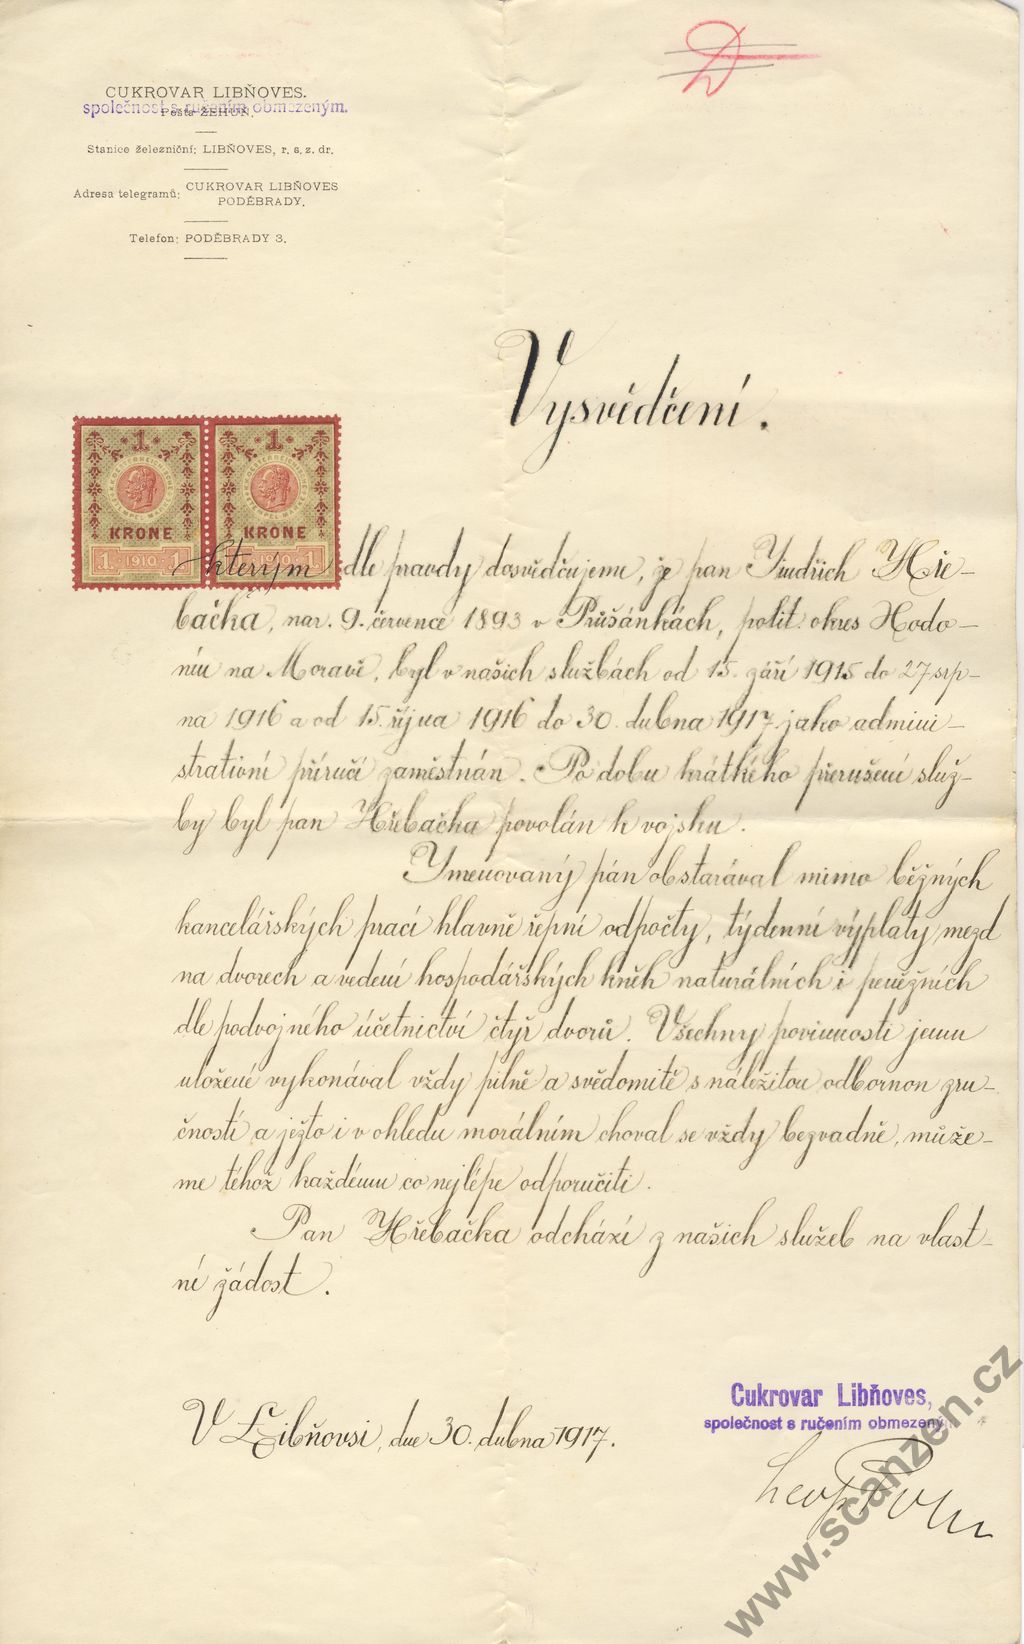 CUKROVAR LIBŇOVES.
společnost s ručením obmezeným.
Pošta ŽEHUŇ.
Stanice železniční: LIBŇOVES, r. s. z. dr.
Adresa telegramů: CUKROVAR LIBŇOVES
PODĚBRADY.
Telefon: PODĚBRADY 3.
Vysvědčení.
1 1
KRONE KRONE
1. 1910 1. 1. 1910 1.
kterým dle pravdy dosvědčujeme, že pan Jindřich Hře-
bačka, nar. 9. července 1893 v Průšánkách, polit. okres Hodo-
nín na Moravě, byl v našich službách od 15. září 1915 do 27 srp-
na 1916 a od 15. října 1916 do 30. dubna 1917 jako admini-
strativní příručí zaměstnán. Po dobu krátkého přerušení služ-
by byl pan Hřebačka povolán k vojsku.
Jmenovaný pán obstarával mimo běžných
kancelářských prací hlavně řepní odpočty, týdenní výplaty mezd
na dvorech a vedení hospodářských kněh naturálních i peněžních
dle podvojného účetnictví čtyř dvorů. Všechny povinnosti jemu
uložené vykonával vždy pilně a svědomitě s náležitou odbornou zru-
čností a ježto i v ohledu morálním choval se vždy bezvadně, může-
me téhož každému co nejlépe odporučiti.
Pan Hřebačka odchází z našich služeb na vlast-
ní žádost.
V Libňovsi, dne 30. dubna 1917.
Cukrovar Libňoves,
společnost s ručením obmezeným
www.scanzen.cz